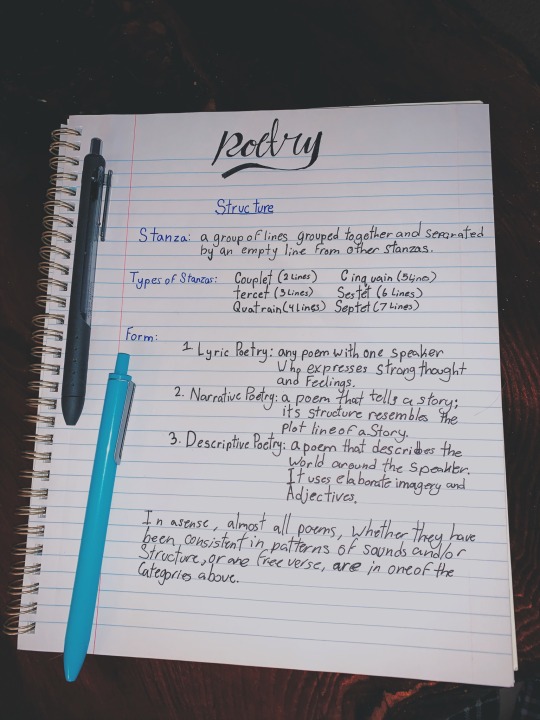 Poetry
Structure
Stanza: a group of lines grouped together and separated
by an empty line from other stanzas.
Types of Stanzas: Couplet (2 Lines) Cinquain (5 Lines)
tercet (3 Lines) Sestet (6 Lines)
Quatrain (4 Lines) Septet (7 Lines)
Form:
1. Lyric Poetry: any poem with one speaker
Who expresses strong thought
and Feelings.
2. Narrative Poetry: a poem that tells a story;
its structure resembles the
Plot line of a Story.
3. Descriptive Poetry: a poem that describes the
World around the Speaker.
It uses elaborate imagery and
Adjectives.
In a sense, almost all poems, Whether they have
been consistent in patterns of sounds and/or
Structure, or are free verse, are in one of the
Categories above.